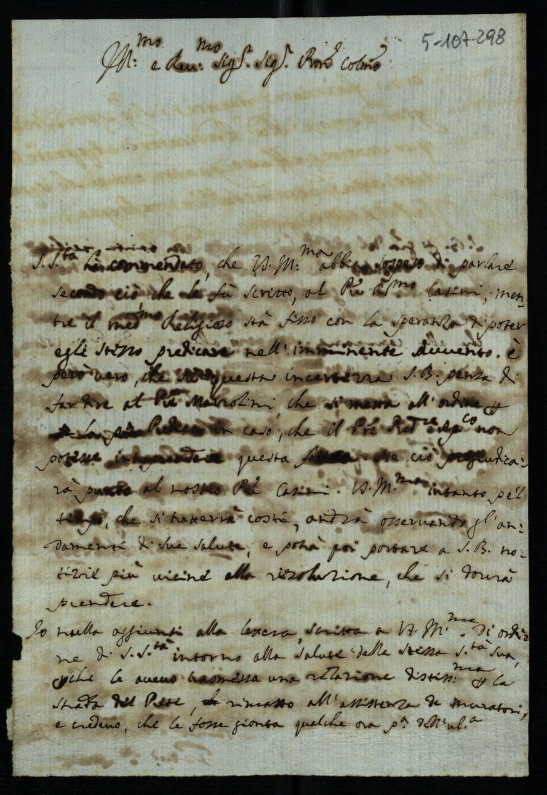 5-107-298
Ill.mo e Rev.mo Sig.r Sig.r Pron Colmo
S. S.tà hà commendato, che V.S. Ill.ma abbia sospeso di parlare
secondo ciò che le fù scritto, al Pre Casini, men-
tre il med.mo Religioso stà fisso con la speranza di poter
egli stesso predicare nell'imminente Avvento. è
però vero, che in questa incertezza S.B. pensa di
far dire al Pre Mazzolini, che si metta all'ordine
in caso, che il Pre non
potesse intraprendere questa che ciò pregiudica-
rà punto al nostro Pre Casini. V.S. Ill.ma intanto pel
tempo, che si tratterrà costì, andrà osservando gl'an-
damenti di sua salute, e potrà poi portare a S.B. no-
tizie più vicine alla risoluzione, che si dovrà
prendere.
Io nulla aggiunsi alla lettera, scritta a V.S. Ill.ma di ordi-
ne di S. S.tà intorno alla salute della stessa S.tà Sua,
perche le avevo trasmessa una relazione distintiss.ma per la
strada del Prete, rimasto all'assistenza de muratori,
e credevo, che le fosse gionta qualche ora p.a dell'ul.a